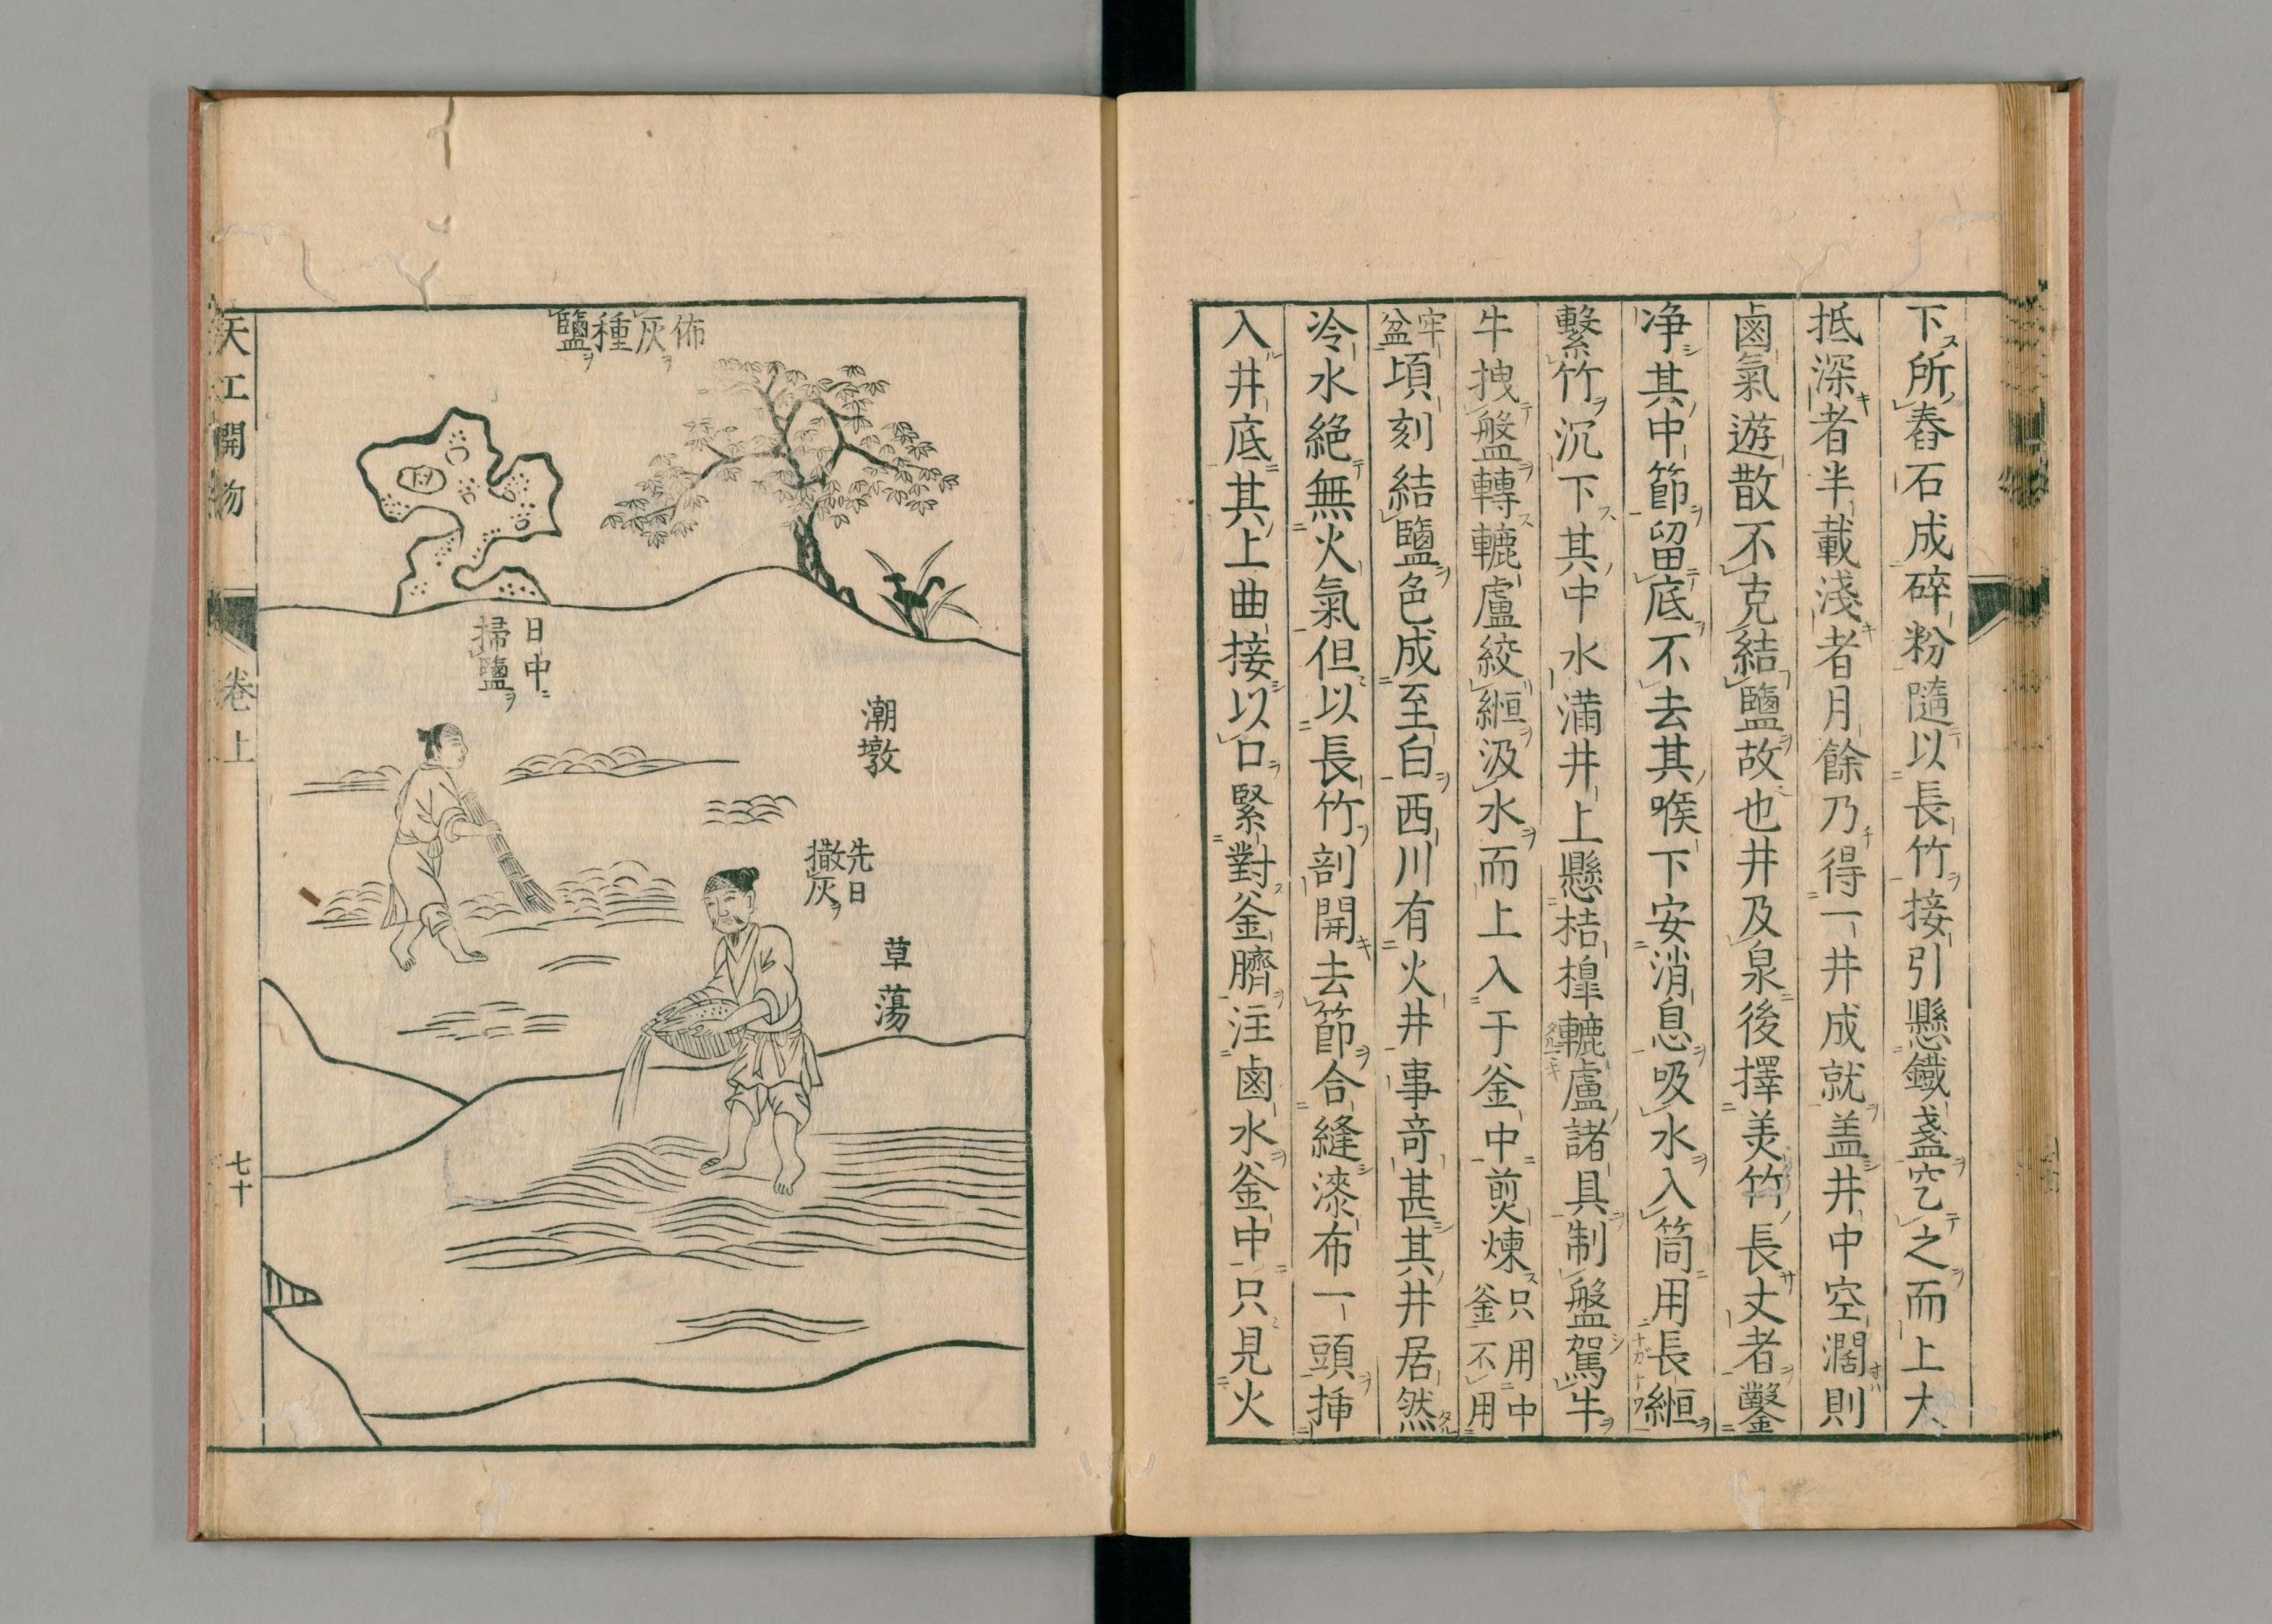 下所舂石成碎粉隨以長竹接引懸鐵盞空之而上大
抵深者半載淺者月餘乃得一井成就盖井中空濶則
鹵氣遊散不克結鹽故也井及泉後擇美竹長丈者鑿
净其中節留底不去其喉下安消息吸水入筒用長縆
繫竹沉下其中水滿井上懸桔槔轆盧諸具制盤駕牛
牛拽盤轉轆盧絞縆汲水而上入于釜中煎煉只用中釜不用
牢盆頃刻結鹽色成至白西川有火井事竒甚其井居然
冷水絕無火氣但以長竹剖開去節合縫漆布一頭揷
入井底其上曲接以口緊對釜臍注鹵水釜中只見火
佈灰種鹽
日中
掃鹽
潮墩
先日
撒灰
草蕩
天工開物
卷上
七十